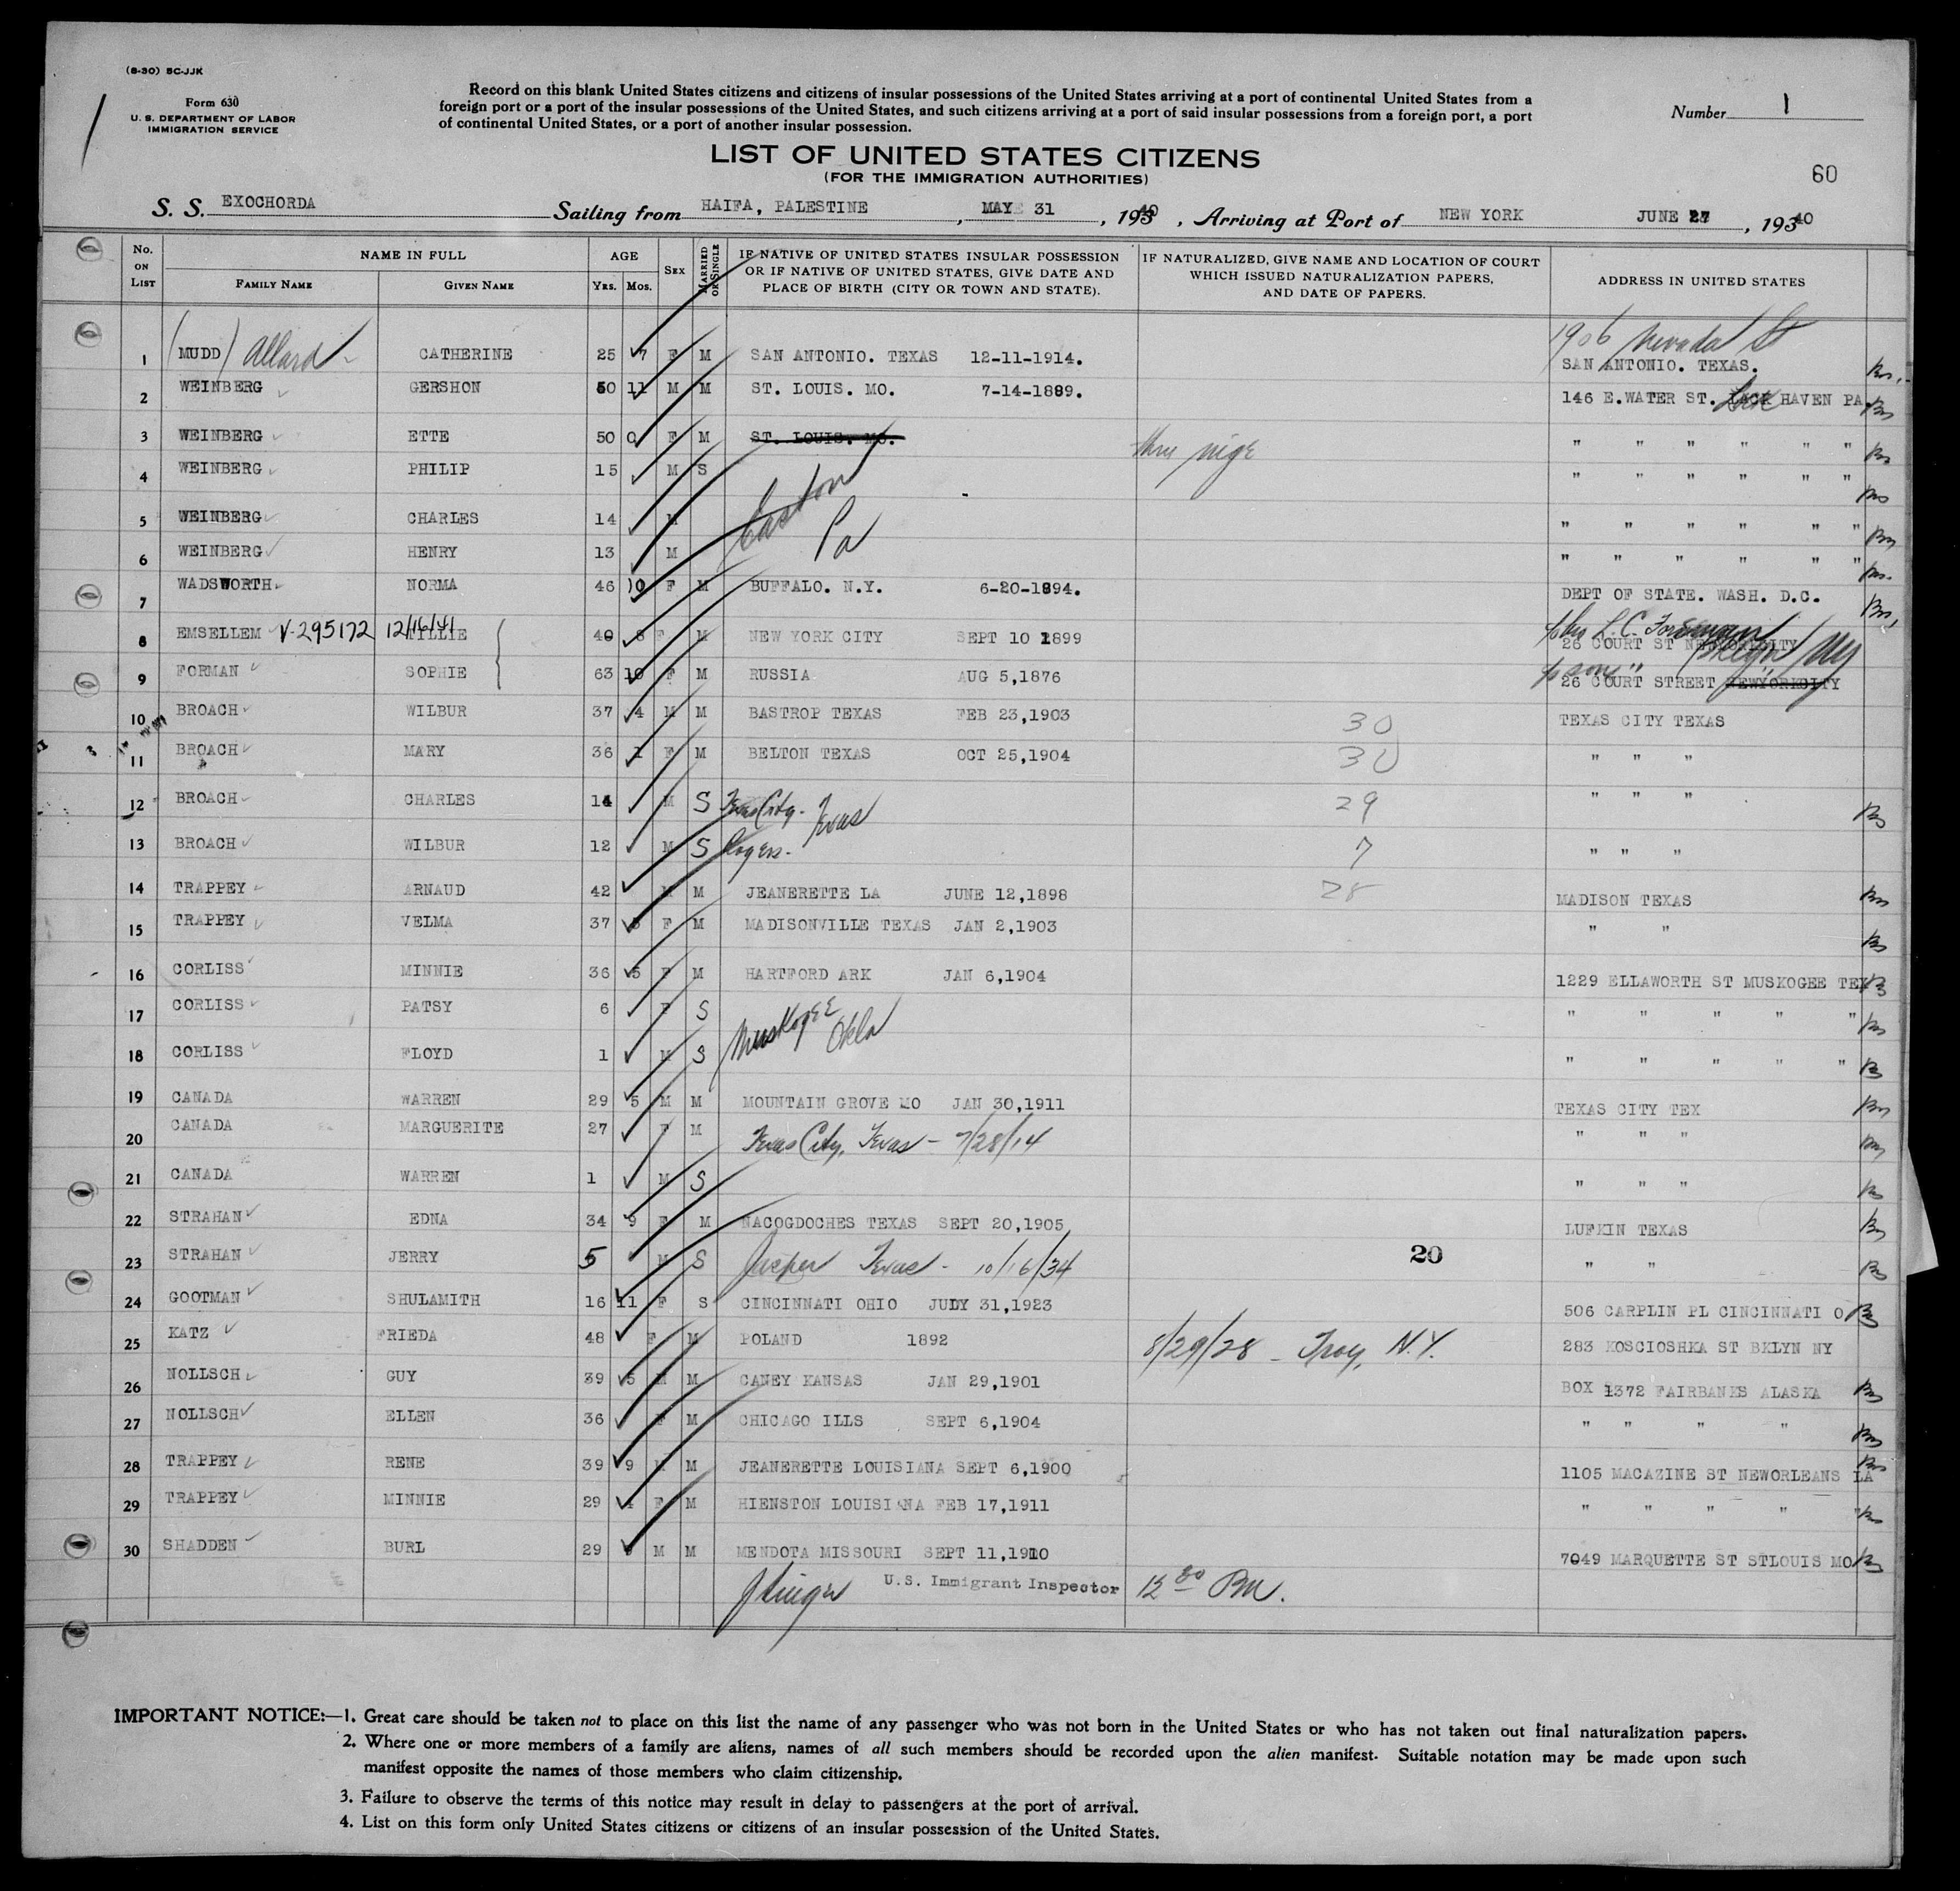 (8-30) 5C-JJK
Form 630
U. S. DEPARTMENT OF LABOR
IMMIGRATION SERVICE
Record on this blank United States citizens and citizens of insular possessions of the United States arriving at a port of continental United States from a
foreign port or a port of the insular possessions of the United States, and such citizens arriving at a port of said insular possessions from a foreign port, a port
of continental United States, or a port of another insular possession.
Number 1
LIST OF UNITED STATES CITIZENS
(FOR THE IMMIGRATION AUTHORITIES)
60
S. S. EXOCHORDA Sailing from HAIFA, PALESTINE , MAY 31 , 1940 , Arriving at Port of NEW YORK JUNE 27 , 1940
No. ON LIST NAME IN FULL AGE SEX MARRIED OR SINGLE IF NATIVE OF UNITED STATES INSULAR POSSESSION OR IF NATIVE OF UNITED STATES, GIVE DATE AND PLACE OF BIRTH (CITY OR TOWN AND STATE). IF NATURALIZED, GIVE NAME AND LOCATION OF COURT WHICH ISSUED NATURALIZATION PAPERS, AND DATE OF PAPERS. ADDRESS IN UNITED STATES
FAMILY NAME GIVEN NAME YRS. MOS.
1906 Nevada St
1 (MUDD) Allard CATHERINE 25 7 F M SAN ANTONIO. TEXAS 12-11-1914. SAN ANTONIO. TEXAS.
2 WEINBERG GERSHON 50 11 M M ST. LOUIS. MO. 7-14-1889. 146 E.WATER ST. Lock HAVEN PA.
3 WEINBERG ETTE 50 0 F M ST. LOUIS. MO. " " " " " "
4 WEINBERG PHILIP 15 M S " " " " " "
5 WEINBERG CHARLES 14 M Easton " " " " " "
6 WEINBERG HENRY 13 M Pa " " " " " "
7 WADSWORTH NORMA 46 10 F M BUFFALO. N.Y. 6-20-1894. DEPT OF STATE. WASH. D.C.
8 EMSELLEM V-295172 12/16/41 TILLIE 40 8 F M NEW YORK CITY SEPT 10 1899 26 COURT ST
9 FORMAN SOPHIE 63 10 F M RUSSIA AUG 5,1876 26 COURT STREET NEWYORKCITY
10 BROACH WILBUR 37 4 M M BASTROP TEXAS FEB 23,1903 30 TEXAS CITY TEXAS
11 BROACH MARY 36 1 F M BELTON TEXAS OCT 25,1904 30 " " "
12 BROACH CHARLES 14 M S Texas City. Texas 29 " " "
13 BROACH WILBUR 12 M S Rogers. 7 " " "
14 TRAPPEY ARNAUD 42 M M JEANERETTE LA JUNE 12,1898 28 MADISON TEXAS
15 TRAPPEY VELMA 37 F M MADISONVILLE TEXAS JAN 2,1903 " "
16 CORLISS MINNIE 36 5 F M HARTFORD ARK JAN 6,1904 1229 ELLAWORTH ST MUSKOGEE TEX
17 CORLISS PATSY 6 F S Muskogee " " " " "
18 CORLISS FLOYD 1 M S Okla " " " " "
19 CANADA WARREN 29 5 M M MOUNTAIN GROVE MO JAN 30,1911 TEXAS CITY TEX
20 CANADA MARGUERITE 27 F M Texas City, Texas - 7/28/14 " " "
21 CANADA WARREN 1 M S " " "
22 STRAHAN EDNA 34 9 F M NACOGDOCHES TEXAS SEPT 20,1905 LUFKIN TEXAS
23 STRAHAN JERRY 5 M S Jasper Texas - 10/16/34 20 " "
24 GOOTMAN SHULAMITH 16 11 F S CINCINNATI OHIO JULY 31,1923 506 CARPLIN PL CINCINNATI O
25 KATZ FRIEDA 48 F M POLAND 1892 8/29/28 - Troy, N.Y. 283 KOSCIOSHKA ST BKLYN NY
26 NOLLSCH GUY 39 5 M M CANEY KANSAS JAN 29,1901 BOX 1372 FAIRBANKS ALASKA
27 NOLLSCH ELLEN 36 F M CHICAGO ILLS SEPT 6,1904 " " " "
28 TRAPPEY RENE 39 9 M M JEANERETTE LOUISIANA SEPT 6,1900 1105 MACAZINE ST NEWORLEANS LA
29 TRAPPEY MINNIE 29 4 F M HIENSTON LOUISIANA FEB 17,1911 " " " " "
30 SHADDEN BURL 29 9 M M MENDOTA MISSOURI SEPT 11,1910 7049 MARQUETTE ST STLOUIS MO
U.S. Immigrant Inspector
IMPORTANT NOTICE:—1. Great care should be taken not to place on this list the name of any passenger who was not born in the United States or who has not taken out final naturalization papers.
2. Where one or more members of a family are aliens, names of all such members should be recorded upon the alien manifest. Suitable notation may be made upon such
manifest opposite the names of those members who claim citizenship.
3. Failure to observe the terms of this notice may result in delay to passengers at the port of arrival.
4. List on this form only United States citizens or citizens of an insular possession of the United States.